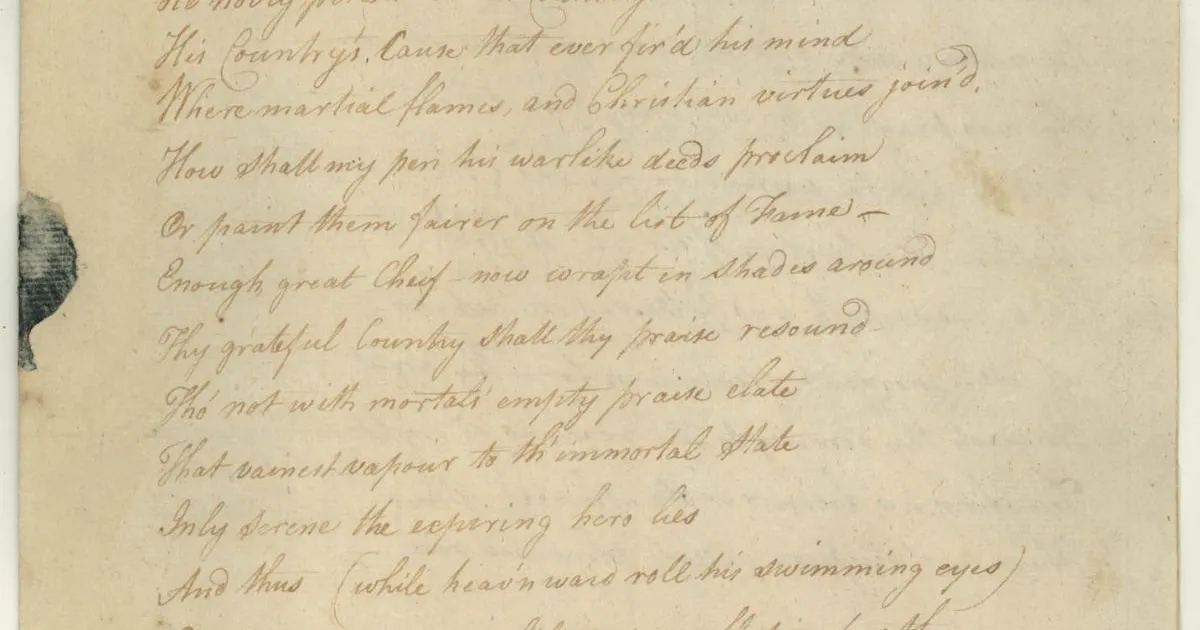 His Country's. Cause that ever fir'd his mind
Where martial flames, and Christian virtues join'd.
How shall my pen his warlike deeds proclaim
Or paint them fairer on the list of Fame –
Enough, great Cheif – now wrapt in shades around
Thy grateful Country shall thy praise resound
Tho' not with mortals' empty praise elate
That vainest vapour to th' immortal State
Inly serene the expiring hero lies
And thus (while heav'nward roll his swimming eyes)